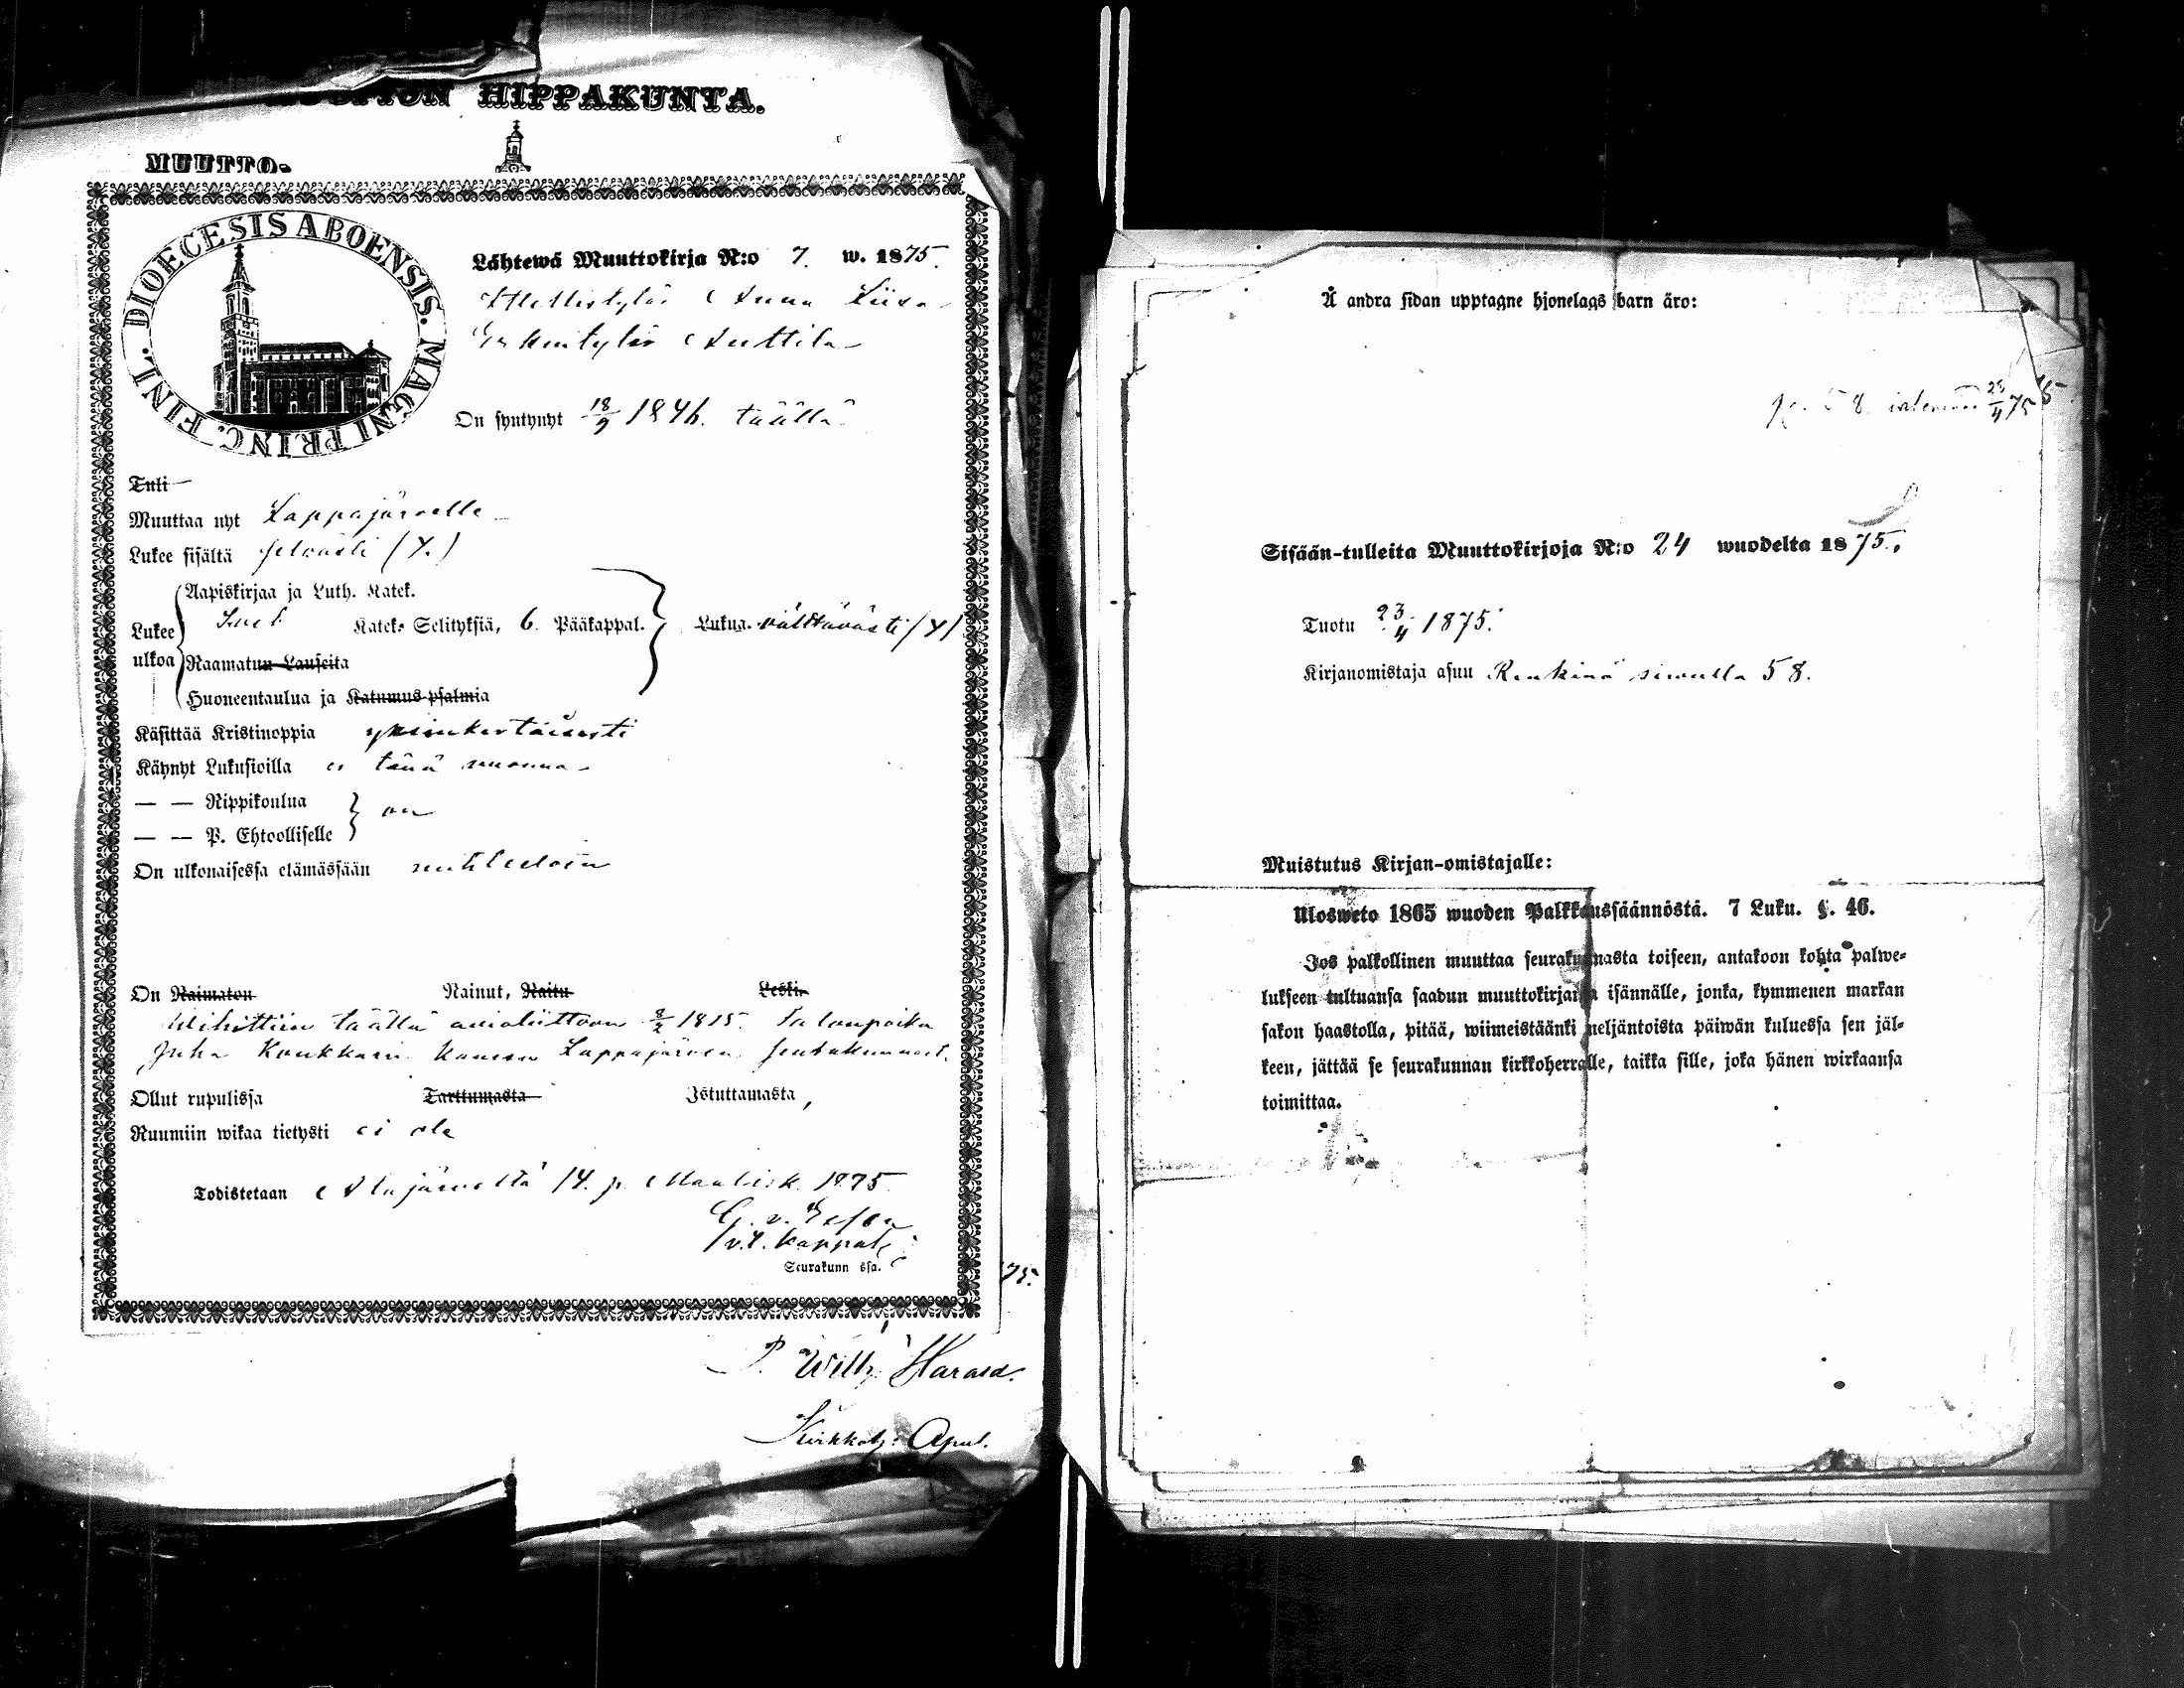 HIPPAKUNTA.
MUUTTO-
DIOECESIS ABOENSIS. MAGNI PRINC. FINL.
Lähtewä Muuttokirja N:o 7. w. 1875.
Anna Liisa
Anttila
On syntynyt 18/9 1846. täällä
Tuli
Muuttaa nyt Lappajärvelle
Lukee sisältä selvästi (4.)
Lukee ulkoa
Aapiskirjaa ja Luth. Katek.
Katek. Selityksiä, 6. Pääkappal. Lukua. välttävästi (4)
Raamatun Lauseita
Huoneentaulua ja Katumus-psalmia
Käsittää Kristinoppia yksinkertaisesti
Käynyt Lukusioilla ei tänä vuonna
— — Rippikoulua
— — P. Ehtoolliselle
on
On ulkonaisessa elämässään nuhteeton
On Naimaton Nainut, Naitu Leski
Wihittiin täällä avioliittoon 1875. talonpoika
Juho Kaukkari kanssa Lappajärven seurakunnast.
Ollut rupulissa Tarttumasta Istuttamasta,
Ruumiin wikaa tietysti ei ole
Todistetaan Alajärveltä 14. p. Maalisk. 1875
G. v. Essen
v.t. kappal.
Seurakunn ssa.
75.
P. Wilh.
Kirkkoh: Apul.
Å andra sidan upptagne hjonelags barn äro:
58. 23/4 75
Sisään-tulleita Muuttokirjoja N:o 24 wuodelta 1875.
Tuotu 23/4 1875.
Kirjanomistaja asuu sivulla 58.
Muistutus Kirjan-omistajalle:
Ulosweto 1865 wuoden Palkkaussäännöstä. 7 Luku. §. 46.
Jos palkollinen muuttaa seurakunnasta toiseen, antakoon kohta palwe-
lukseen tultuansa saadun muuttokirjansa isännälle, jonka, kymmenen markan
sakon haastolla, pitää, wiimeistäänki neljäntoista päiwän kuluessa sen jäl-
keen, jättää se seurakunnan kirkkoherralle, taikka sille, joka hänen wirkaansa
toimittaa.